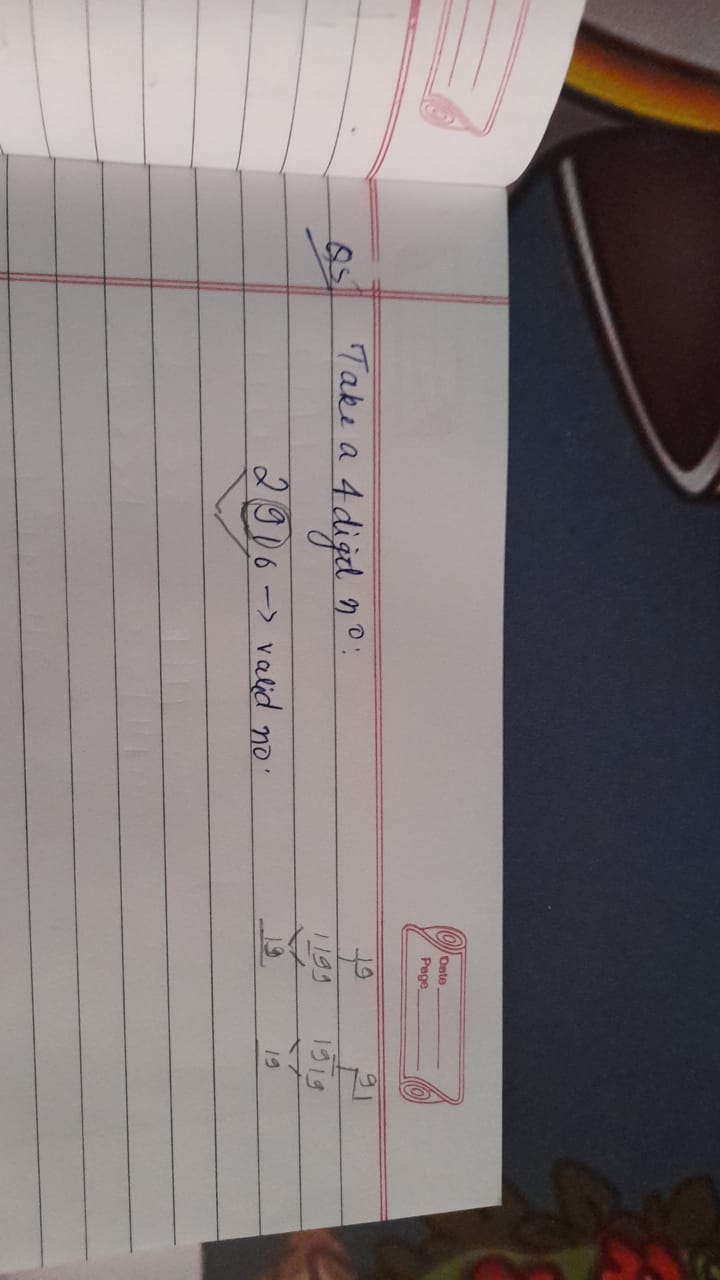 Date
Page
Q5 Take a 4 digit no:
2916 → valid no.
19 91
1199 1919
19 19